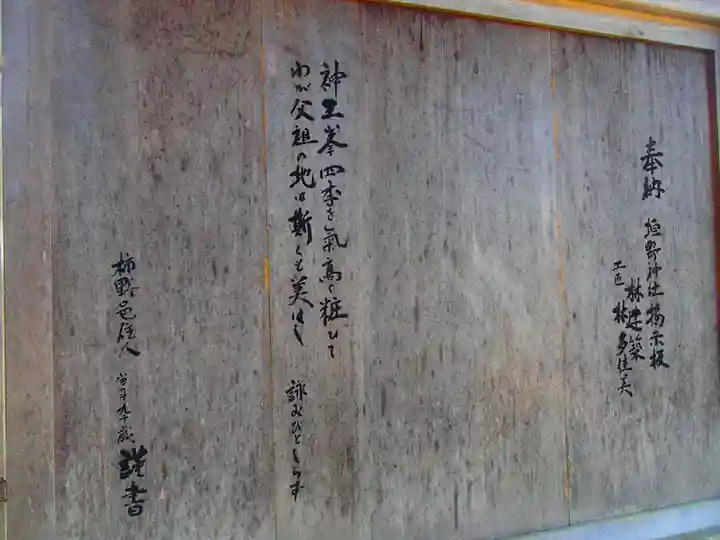 奉納 垣野神社掲示板
林建築
工匠 林多佳美
神工峯四季を氣高く粧ひて
わが父祖の地は斯くも美はし 詠みびとしらず
柿野邑住人 当年九十歳 謹書